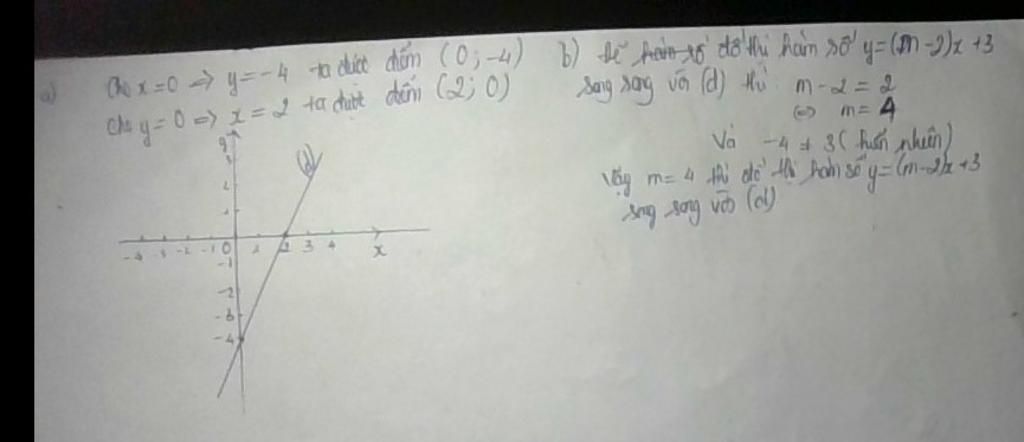 a) Cho x=0 => y=-4 ta được điểm (0;-4)
Cho y=0 => x=2 ta được điểm (2;0)
y
3
2
1
(d)
-4 -3 -2 -1 0 1 2 3 4 x
-1
-2
-3
-4
b) Để hàm số đồ thị hàm số y=(m-2)x+3
song song với (d) thì m-2=2
<=> m=4
Và -4 ≠ 3 (hiển nhiên)
Vậy m=4 thì đồ thị hàm số y=(m-2)x+3
song song với (d)